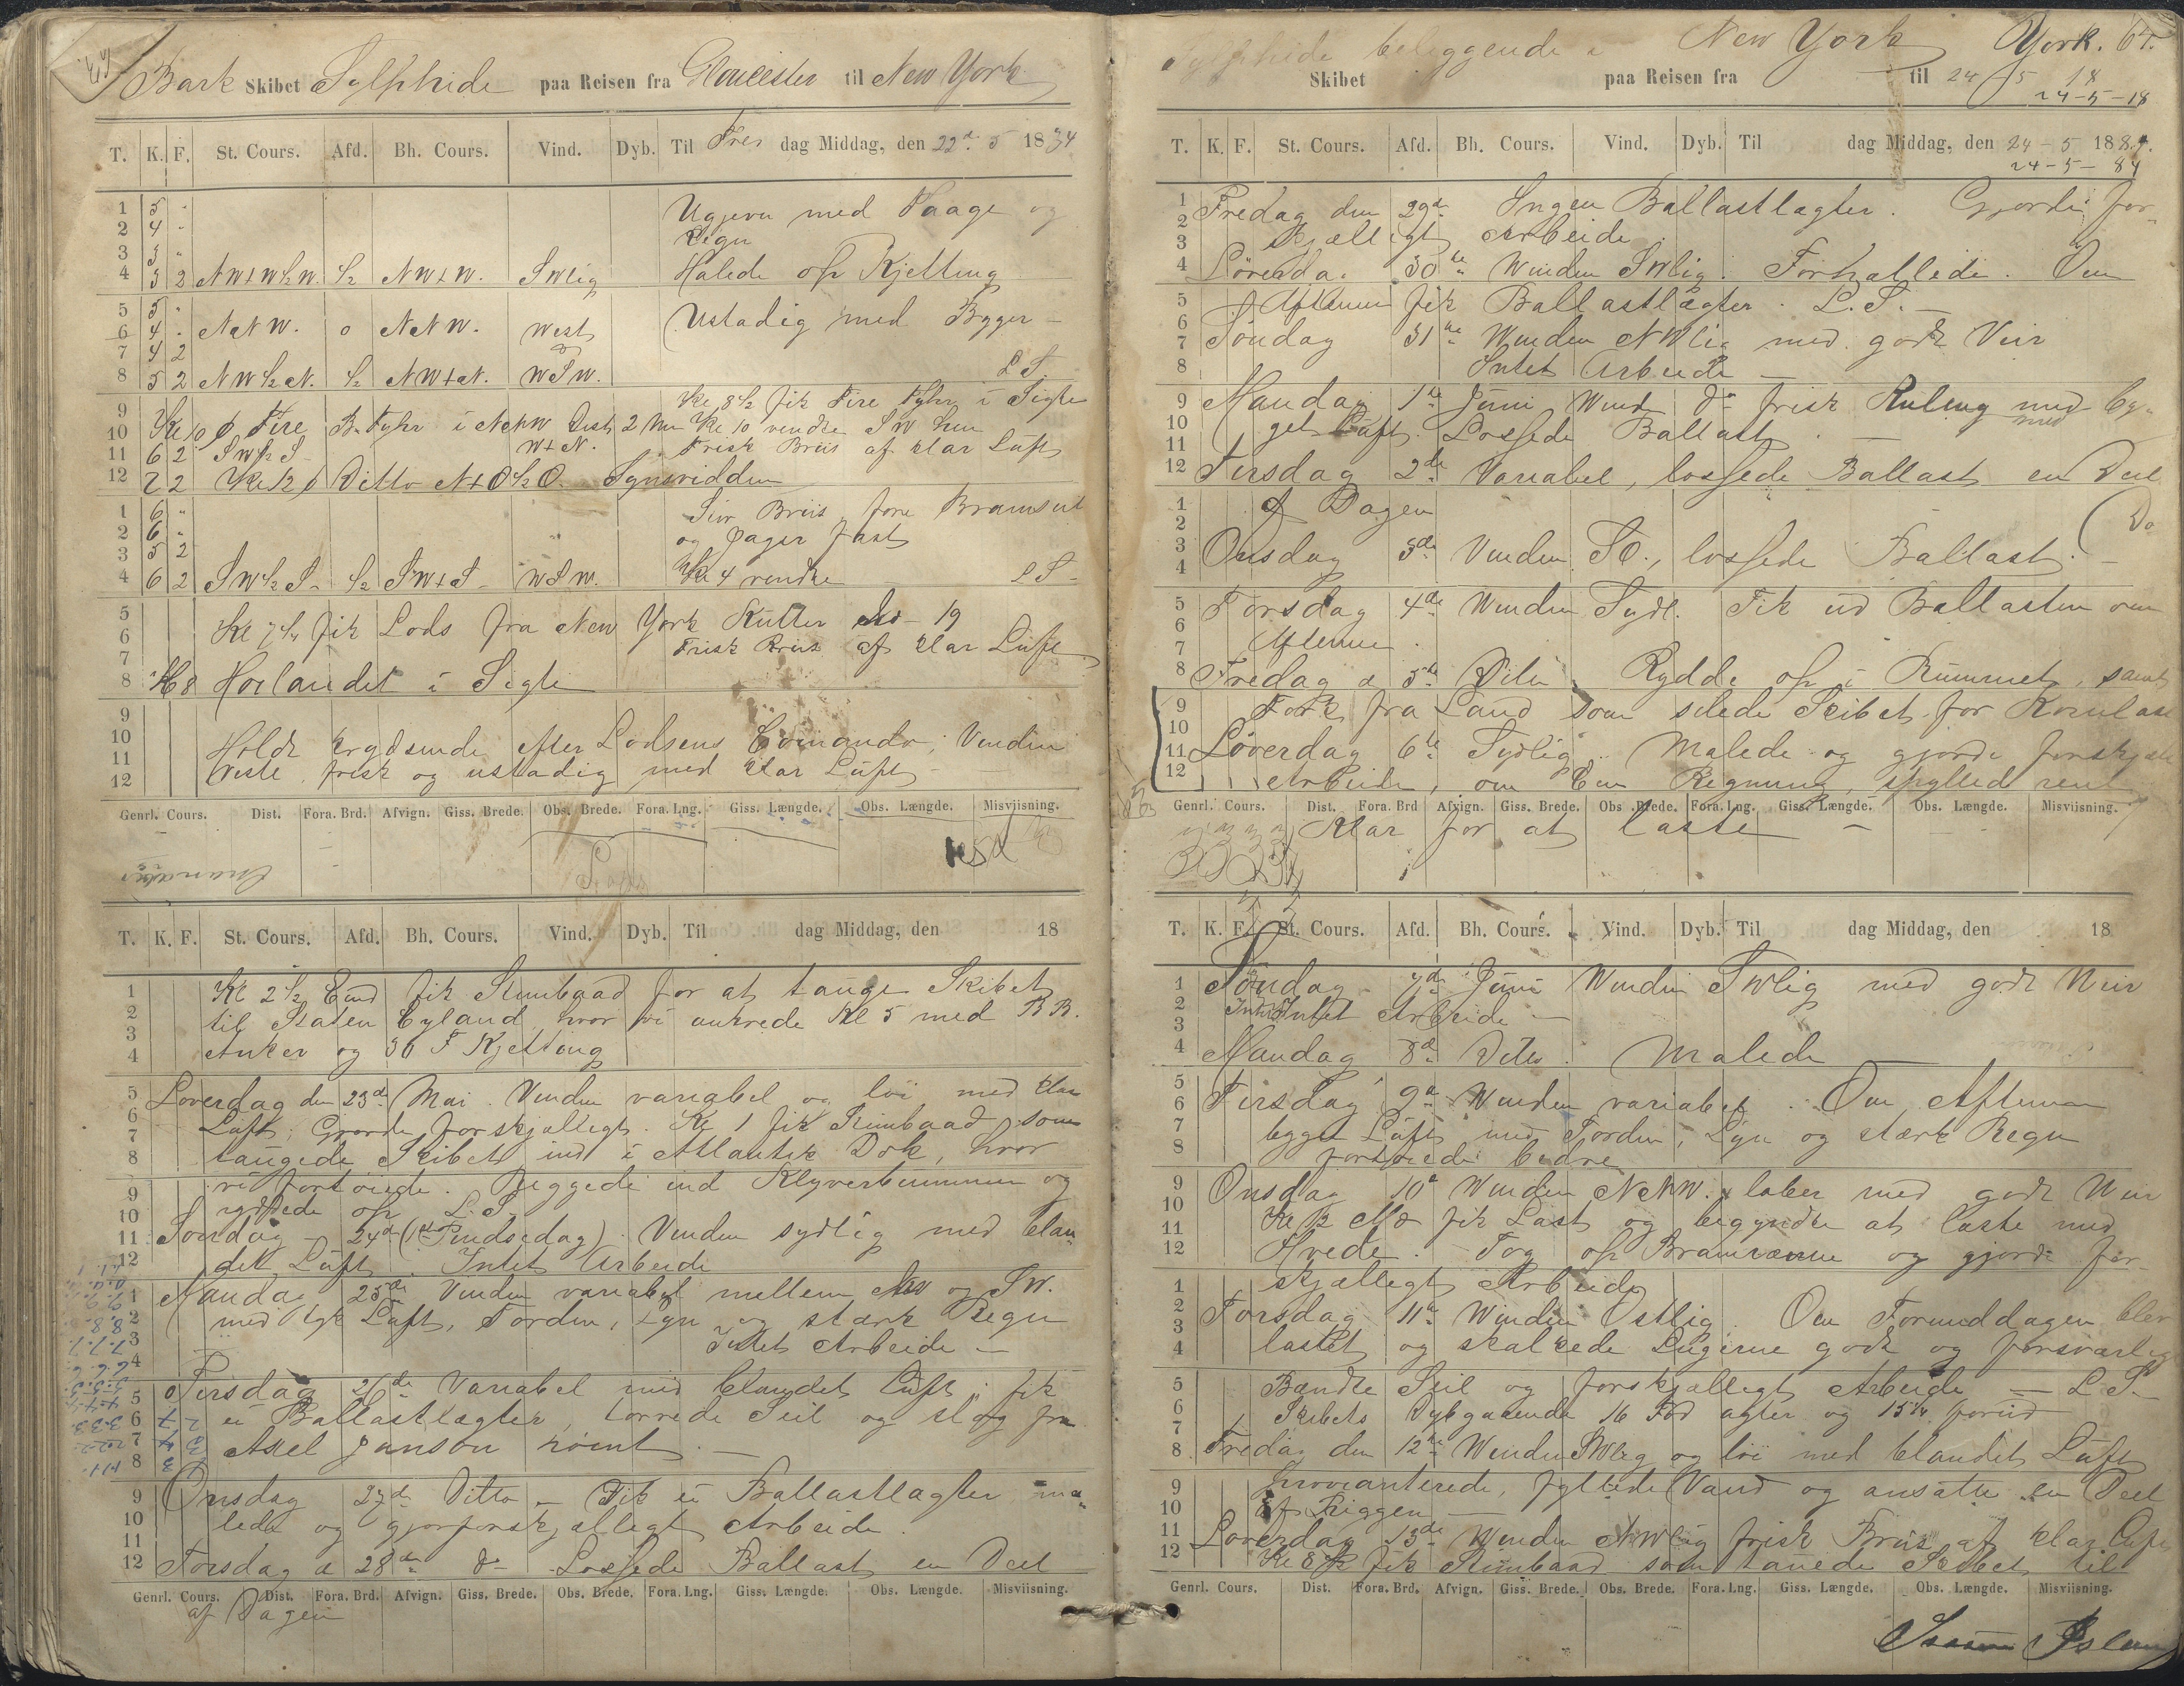 Bark Skibet Sylphide paa Reisen fra Gloucester til New York
T. K. F. St. Cours. Afd. Bh. Cours. Vind. Dyb. Til Fre dag Middag, den 22de 5 1884
1 5 " Ugjevn med Taage og
2 4 " Regn
3 3 "
4 3 2 NWtW½W. ½ NWtW. SWlig Halede op Kjetting
5 5 " Ustadig med Bygger –
6 4 . NNW. 0 NNW. West
7 4 2
8 5 2 NW½N. ½ NWtN. WSW. L.S.
9 Kl. 8½ fik Fire Fyhr i Sigte
10 Kl 10 Fire B. Fyhr i NNW Dist 2 Kl 10 vendte SW hen
11 6 2 SW½S WtN. Frisk Briis af klar Luft
12 7 2 Kl 12 Ditto NtO½O. Synsvidden
1 6 " Stiv Briis, fore Bramseil
2 6 " og Jager fast
3 5 2
4 6 2 SW½S ½ SWtS WSW. Kl 4 vendte L S
5
6 Kl 7¼ fik Lods fra New York Kutter No 19
7 Frisk Briis af klar Luft
8 Kl 8 Hoilandet i Sigte
9
10
11 Holdt krydsende efter Lodsens Comando, Vinden
12 Veste. frisk og ustadig med klar Luft
Genrl. Cours. Dist. Fora. Brd. Afvign. Giss. Brede. Obs. Brede. Fora. Lng. Giss. Længde. Obs. Længde. Misviisning.
T. K. F. St. Cours. Afd. Bh. Cours. Vind. Dyb. Til dag Middag, den 18
1 Kl 2½ Emd fik Stimbaad for at tauge Skibet
2 til Staten Eyland, hvor vi ankrede Kl 5 med BB.
3
4 Anker og 30 F Kjetting
5 Loverdag den 23de Mai. Vinden variabel og løi med klar
6 Luft; Gjorde forskjælligt. Kl 1 fik Stimbaad som
7
8 taugede Skibet ind i Atlantik Dok, hvor
9 vi fortøiede. Riggede ind Klyverbummen og
10 ryddede op L.S.
11 Søndag 24de (1ste Pindsedag). Vinden sydlig med blan
12 det Luft. Intet Arbeide
1 Mandag 25de Vinden variabel mellem NW og SW.
2 med tyk Luft, Torden, Lyn og stærk Regn
3 Intet Arbeide –
4
5 Tirsdag 26de Variabel med blandet Luft; fik
6 ei Ballastlægter, torrede Seil og slog fra
7
8 Axel Janson rømt. –
9 Onsdag 27de Ditto – Fik ei Ballastlagter ma-
10 lede og gjorforskjælligt Arbeide.
11
12 Torsdag d 28de do Lossede Ballast en Deel
Genrl. Cours. Dist. Fora. Brd. Afvign. Giss. Brede. Obs. Brede. Fora. Lng. Giss. Længde. Obs. Længde. Misviisning.
af Dagen
Sylphide beliggende i New York York. 64.
Skibet paa Reisen fra til 24 5 18
24-5-18
T. K. F. St. Cours. Afd. Bh. Cours. Vind. Dyb. Til dag Middag, den 24-5 1884.
24-5-84
1 Fredag den 29de Ingen Ballastlagter. Gjorde for-
2
3 skjælligt Arbeide
4 Løverdag 30te Winden SWlig. Forhallede. Om
5 Aftenen fik Ballastlægter. L.S. –
6
7 Søndag 31te Winden NWlig med godt Veir
8 Intet Arbeide
9 Mandag 1ste Juni Wind do frisk Kuling med by-
10 get Luft. Lossede Ballast
11
12 Tirsdag 2de Variabel, lossede Ballast en Deel
1 af Dagen
2
3 Onsdag 3die Vinden SO., lossede Ballast. –
4
5 Torsdag 4de Winden Sydl. Fik ud Ballasten om
6
7 Aftenen.
8 Fredag d 5te Rydde op i Rummet, samt
9 Folk fra Land som silede Skibet for Kornlast
10
11 Løverdag 6te Sydlig. Malede og gjorde forskjæl
12 Arbeide, om Regning, skylled rent
Genrl. Cours. Dist. Fora. Brd Afvign. Giss. Brede. Obs. Brede. Fora. Lng. Giss. Længde. Obs. Længde. Misviisning.
Klar for at laste –
T. K. F. St. Cours. Afd. Bh. Cours. Vind. Dyb. Til dag Middag, den 18
1 Søndag 7de Juni Winden SWlig med godt Weir
2 Intet Arbeide –
3
4 Mandag 8de Ditto. Malede
5
6 Tirsdag 9de Winden variabel. Om Aftenen
7 bygget Luft med Torden, Lyn og stærk Regn
8 fortøiede bedre
9 Onsdag 10de Winden NNW. laber med godt Weir
10
11 Kl fik Last og begyndte at laste med
12 Hvede. Tog op Bramræerne og gjorde for-
1 skjælligt Arbeide
2
3 Torsdag 11te Winden Ostlig. Om Formiddagen blev
4 lastet og skalkede Lugerne godt og forsvarlig
5 Bændte Seil og forskjælligt Arbeide – L.S.
6 Skibets Dybgaaende 16 Fod agter og 15¼ forud
7
8 Fredag den 12te Winden SWlig og løi med blandet Luft
9 Provianterede, fyllede Vand og ansatte en Deel
10 af Riggen –
11 Løverdag 13de Winden NWlig frisk Briis af klar Luft
12 Kl 8 fik Stimbaad som tauede Skibet til
Genrl. Cours. Dist. Fora. Brd. Afvign. Giss. Brede. Obs. Brede. Fora. Lng. Giss. Længde. Obs. Længde. Misviisning.